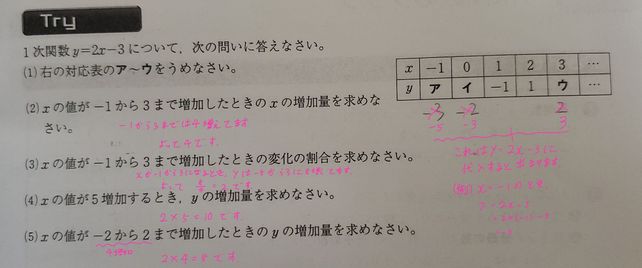 Try
1次関数y=2x-3について,次の問いに答えなさい。
(1) 右の対応表のア～ウをうめなさい。
x -1 0 1 2 3 …
y ア イ -1 1 ウ …
-5 -3 3
(2) xの値が-1から3まで増加したときのxの増加量を求めなさい。
-1から3までは4増えてます
よって4です。
(3) xの値が-1から3まで増加したときの変化の割合を求めなさい。
よって 8/4=2です
(4) xの値が5増加するとき,yの増加量を求めなさい。
2×5=10です。
(5) xの値が-2から2まで増加したときのyの増加量を求めなさい。
4増加
2×4=8です
これはy=2x-3に
代入すると出ます
(例) x=-1のとき